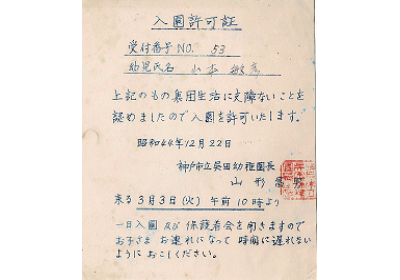 入園許可証
受付番号 NO. 53
幼児氏名 山本
上記のもの集団生活に支障ないことを
認めましたので入園を許可いたします。
昭和44年12月22日
神戸市立呉田幼稚園長
山形
来る 3月3日(火) 午前10時より
一日入園 及び 保護者会を開きますので
お子さま お連れになって 時間に遅れない
ように おこしください。